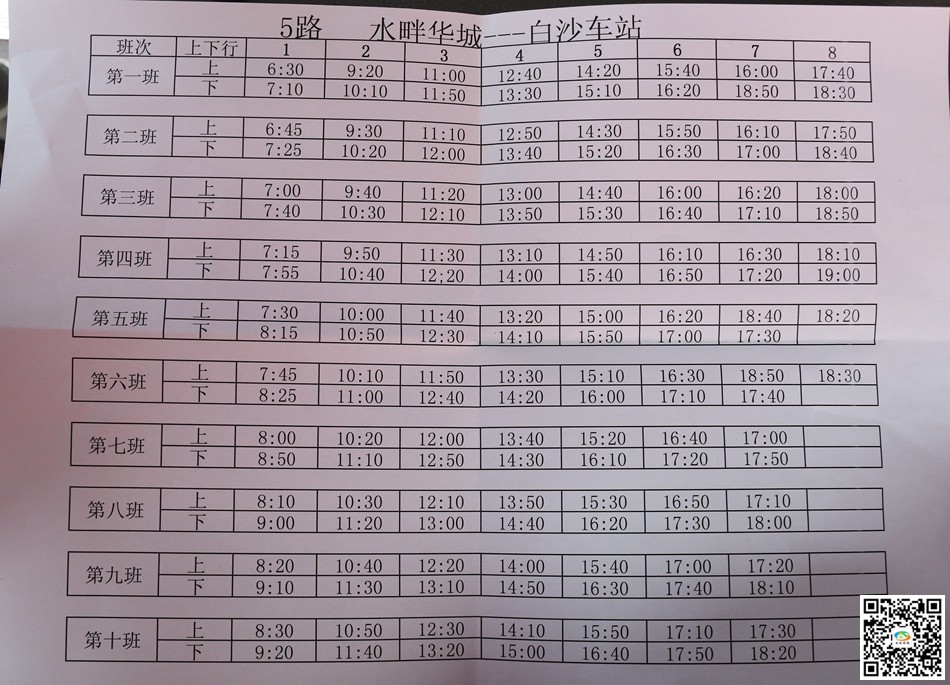 5路 水畔华城---白沙车站
班次 上下行 1 2 3 4 5 6 7 8
第一班 上 6:30 9:20 11:00 12:40 14:20 15:40 16:00 17:40
下 7:10 10:10 11:50 13:30 15:10 16:20 18:50 18:30
第二班 上 6:45 9:30 11:10 12:50 14:30 15:50 16:10 17:50
下 7:25 10:20 12:00 13:40 15:20 16:30 17:00 18:40
第三班 上 7:00 9:40 11:20 13:00 14:40 16:00 16:20 18:00
下 7:40 10:30 12:10 13:50 15:30 16:40 17:10 18:50
第四班 上 7:15 9:50 11:30 13:10 14:50 16:10 16:30 18:10
下 7:55 10:40 12;20 14:00 15:40 16:50 17:20 19:00
第五班 上 7:30 10:00 11:40 13:20 15:00 16:20 18:40 18:20
下 8:15 10:50 12:30 14:10 15:50 17:00 17:30
第六班 上 7:45 10:10 11:50 13:30 15:10 16:30 18:50 18:30
下 8:25 11:00 12:40 14:20 16:00 17:10 17:40
第七班 上 8:00 10:20 12:00 13:40 15:20 16:40 17:00
下 8:50 11:10 12:50 14:30 16:10 17:20 17:50
第八班 上 8:10 10:30 12:10 13:50 15:30 16:50 17:10
下 9:00 11:20 13:00 14:40 16:20 17:30 18:00
第九班 上 8:20 10:40 12:20 14:00 15:40 17:00 17:20
下 9:10 11:30 13:10 14:50 16:30 17:40 18:10
第十班 上 8:30 10:50 12:30 14:10 15:50 17:10 17:30
下 9:20 11:40 13:20 15:00 16:40 17:50 18:20